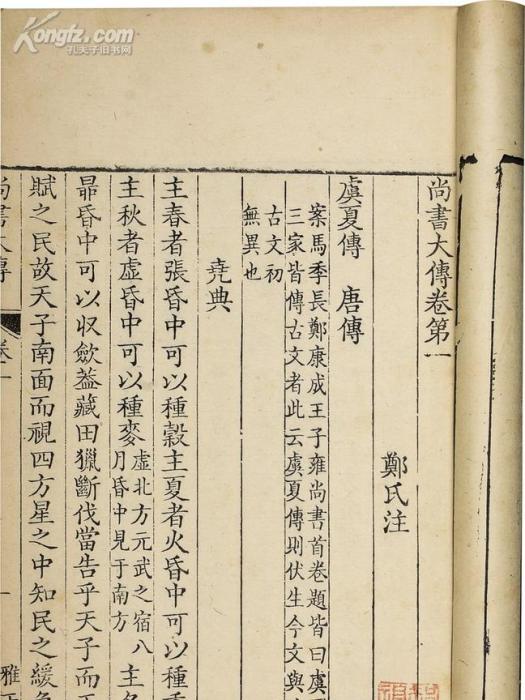 Kongfz.com
孔夫子旧书网
尚書大傳卷第一
鄭氏注
虞夏傳 唐傳
案馬季長鄭康成王子雍尚書首卷題皆曰虞
三家皆傳古文者此云虞夏傳則伏生今文與
古文初
無異也
堯典
主春者張昏中可以種穀主夏者火昏中可以種
主秋者虛昏中可以種麥
虛北方元武之宿八
月昏中見于南方
主
昴昏中可以收斂葢藏田獵斷伐當告乎天子而
賦之民故天子南面而視四方星之中知民之緩
尚書大傳 卷一 一 雅